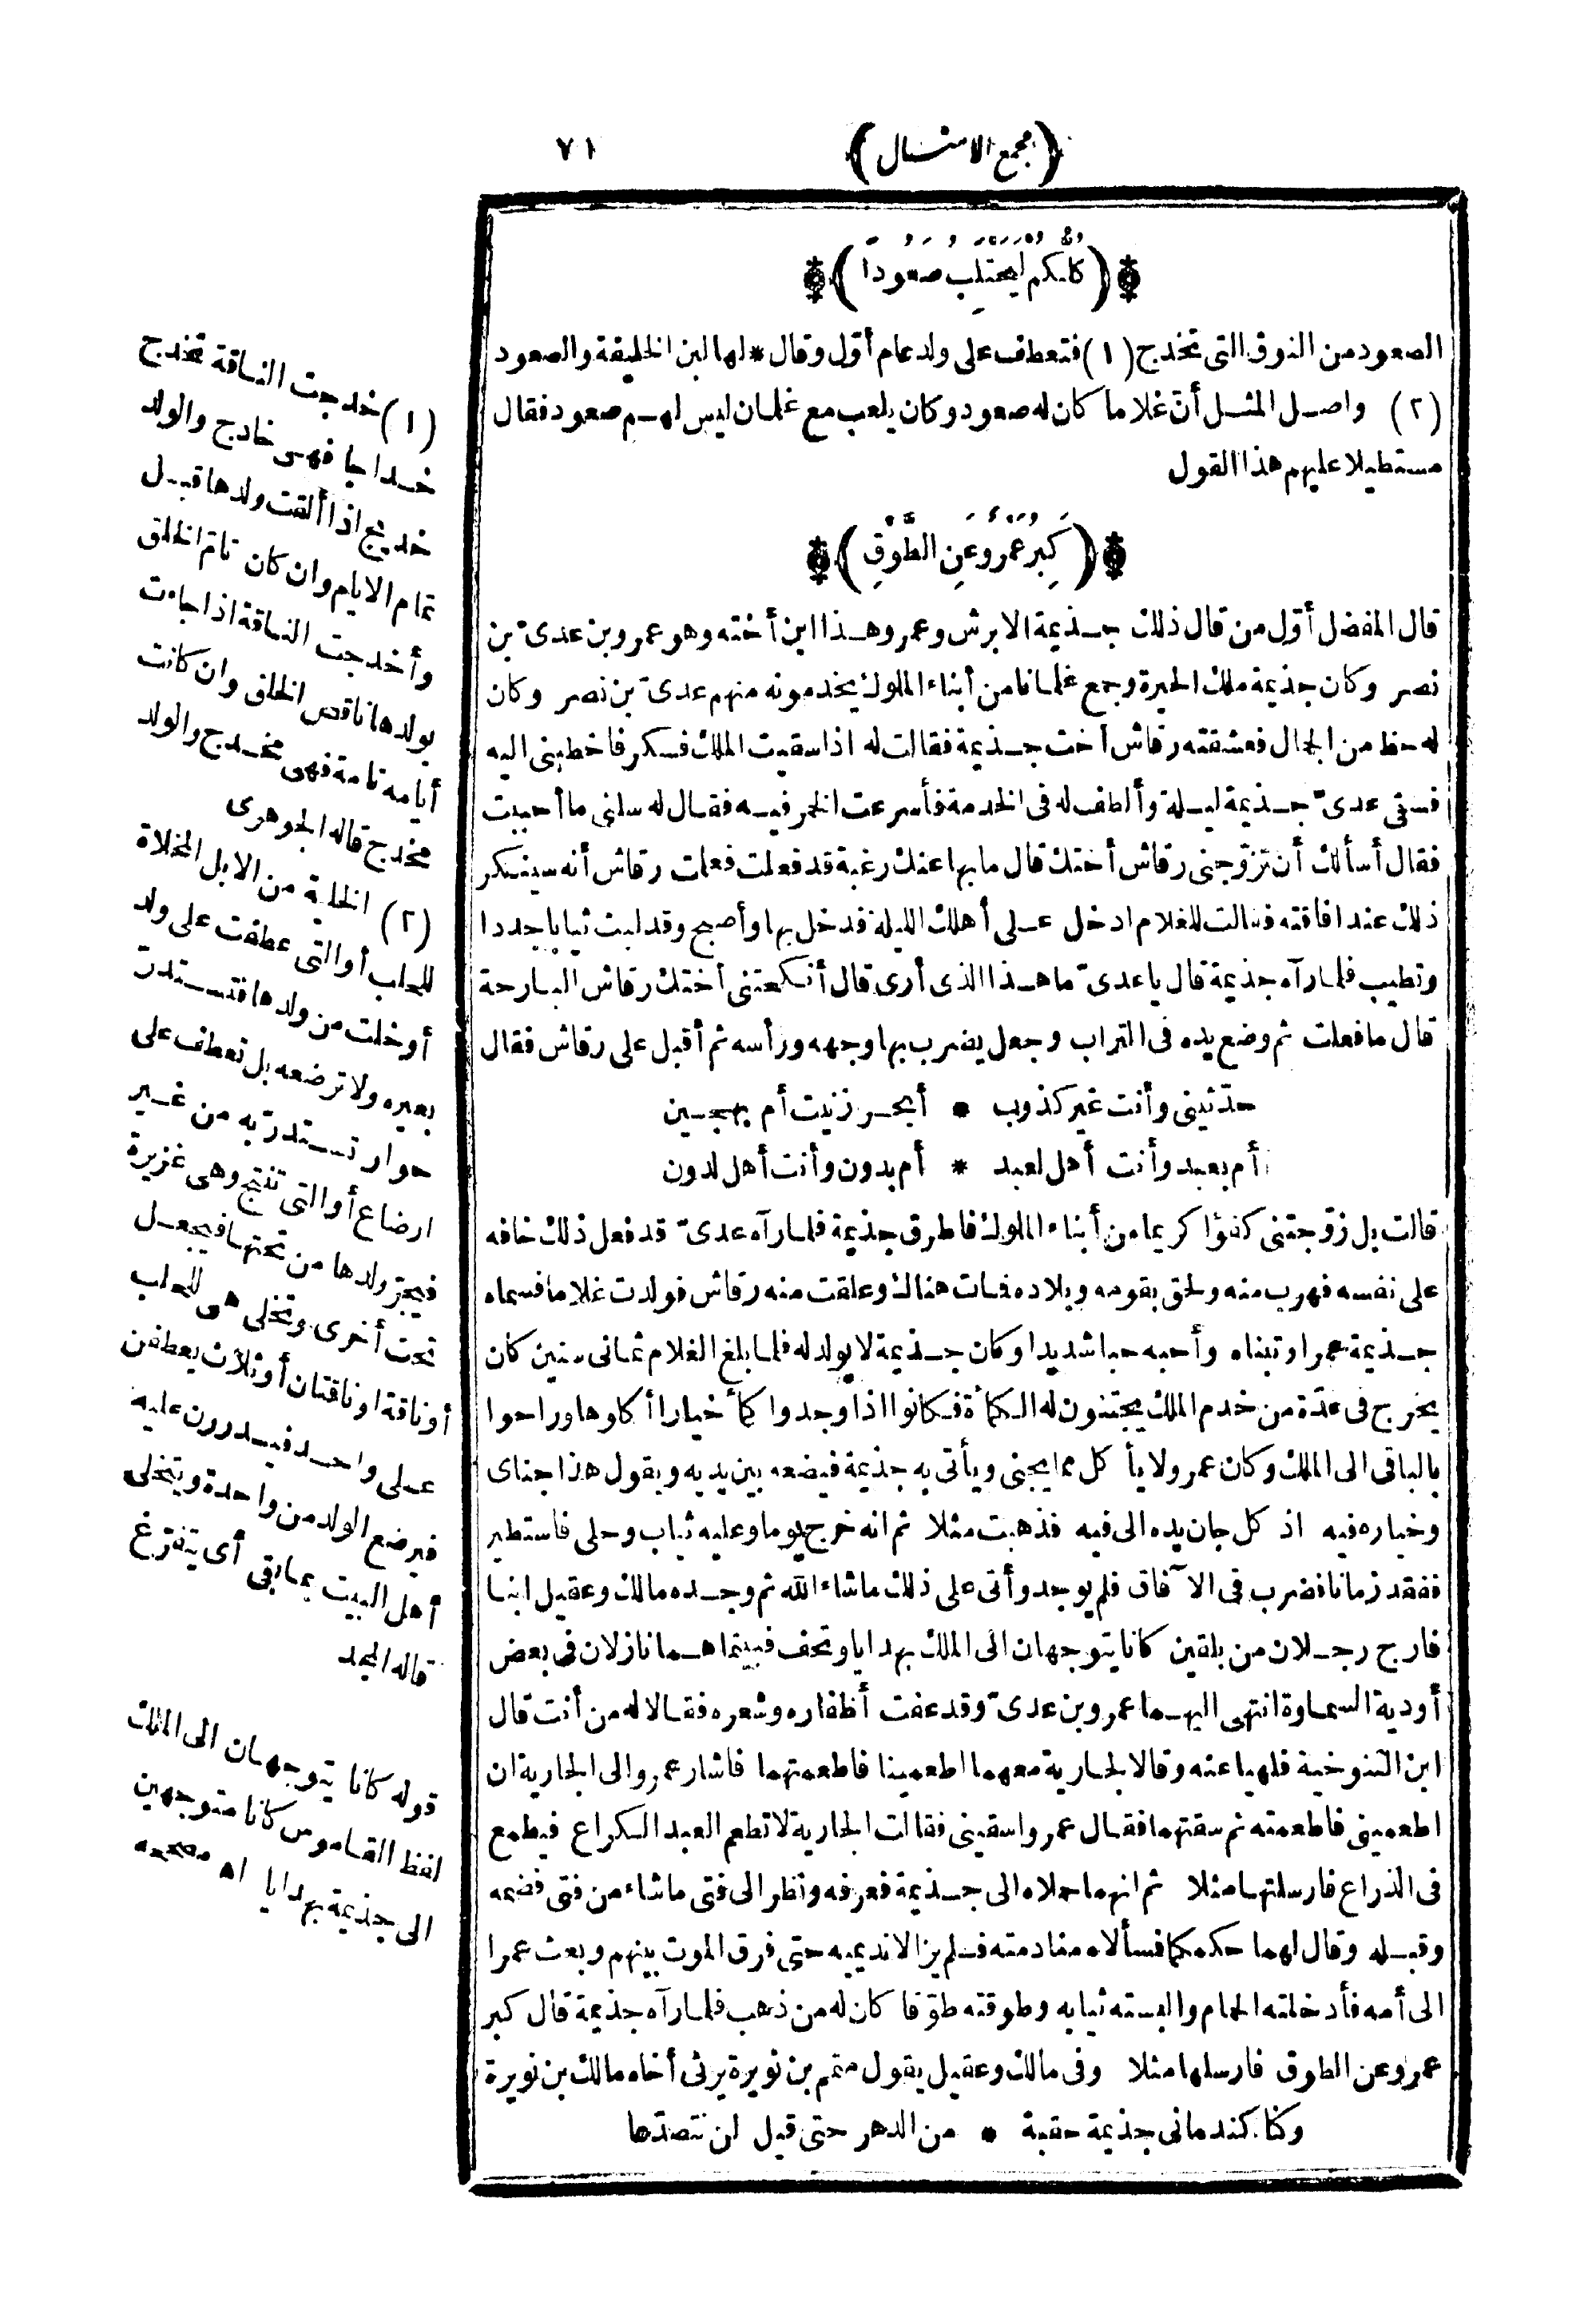 (مجمع الامثال) ٧١
(كُلُّكُمْ لِيَحْتَلِبْ صَعُودًا)
الصعود من النوق التى تخدج (١) فتعطف على ولد عام أوّل وقال * لها لبن الخلية والصعود
(٢) واصل المثل أنّ غلاما كان له صعود وكان يلعب مع غلمان ليس لهم صعود فقال
مستطيلا عليهم هذا القول
(كَبِرَ عَمْرٌو عَنِ الطَّوْقِ)
قال المفضل أوّل من قال ذلك جذيمة الابرش وعمرو هذا ابن أخته وهو عمرو بن عدىّ بن
نصر وكان جذيمة ملك الحيرة وجمع غلمانا من أبناء الملوك يخدمونه منهم عدىّ بن نصر وكان
له حظ من الجمال فعشقته رقاش أخت جذيمة فقالت له اذا سقيت الملك فسكر فاخطبنى اليه
فسقى عدىّ جذيمة ليلة وألطف له فى الخدمة فأسرعت الخمر فيه فقال له سلنى ما أحببت
فقال أسألك أن تزوّجنى رقاش أختك قال ما بها عنك رغبة قد فعلت فعلمت رقاش أنه سينكر
ذلك عند افاقته فقالت للغلام ادخل على أهلك الليلة فدخل بها وأصبح وقد لبس ثيابا جددا
وتطيب فلما رآه جذيمة قال يا عدىّ ما هذا الذى أرى قال أنكحتنى أختك رقاش البارحة
قال ما فعلت ثم وضع يده فى التراب وجعل يضرب بها وجهه ورأسه ثم أقبل على رقاش فقال
حدّثينى وأنت غير كذوب * أبحر زنيت أم بهجين
أم بعبد وأنت أهل لعبد * أم بدون وأنت أهل لدون
قالت بل زوّجتنى كفؤا كريما من أبناء الملوك فاطرق جذيمة فلما رآه عدىّ قد فعل ذلك خافه
على نفسه فهرب منه ولحق بقومه وبلاده فمات هناك وعلقت منه رقاش فولدت غلاما فسماه
جذيمة عمرا وتبناه وأحبه حبا شديدا وكان جذيمة لا يولد له فلما بلغ الغلام ثمانى سنين كان
يخرج فى عدّة من خدم الملك يجتنون له الكمأة فكانوا اذا وجدوا كمأ خيارا أكلوها وراحوا
بالباقى الى الملك وكان عمرو لا يأكل مما يجنى ويأتى به جذيمة فيضعه بين يديه ويقول هذا جناى
وخياره فيه اذ كل جان يده الى فيه فذهبت مثلا ثم انه خرج يوما وعليه ثياب وحلى فاستطير
ففقد زمانا فضرب فى الآفاق فلم يوجد وأتى على ذلك ما شاء الله ثم وجده مالك وعقيل ابنا
فارج رجلان من بلقين كانا يتوجهان الى الملك بهدايا وتحف فبينما هما نازلان فى بعض
أودية السماوة انتهى اليهما عمرو بن عدىّ وقد عفت أظفاره وشعره فقالا له من أنت قال
ابن التنوخية فلهيا عنه وقالا لجارية معهما اطعمينا فاطعمتهما فاشار عمرو الى الجارية ان
اطعمينى فاطعمته ثم سقتهما فقال عمرو اسقينى فقالت الجارية لا تطعم العبد الكراع فيطمع
فى الذراع فارسلتها مثلا ثم انهما حملاه الى جذيمة فعرفه ونظر الى فتى ما شاء من فتى فضمه
وقبله وقال لهما حكمكما فسألاه منادمته فلم يزالا نديميه حتى فرق الموت بينهم وبعث عمرا
الى أمه فأدخلته الحمام والبسته ثيابه وطوقته طوقا كان له من ذهب فلما رآه جذيمة قال كبر
عمرو عن الطوق فارسلها مثلا وفى مالك وعقيل يقول متمم بن نويرة يرثى أخاه مالك بن نويرة
وكنا كندمانى جذيمة حقبة * من الدهر حتى قيل لن نتصدّعا
(١) خدجت الناقة تخدج
خداجا فهى خادج والولد
خديج اذا ألقت ولدها قبل
تمام الايام وان كان تامّ الخلق
وأخدجت الناقة اذا جاءت
بولدها ناقص الخلق وان كانت
أيامه تامة فهى مخدج والولد
مخدج قاله الجوهرى
(٢) الخلية من الابل المخلاة
للحلب أو التى عطفت على ولد
أو خلت من ولدها فتستدرّ
بعيره ولا ترضعه بل تعطف على
حوار تستدرّ به من غير
ارضاع أو التى تنتج وهى غزيرة
فيجرّ ولدها من تحتها فيجعل
تحت أخرى وتخلى هى للحلب
أو ناقة او ناقتان أو ثلاث يعطفن
على واحد فيدررن عليه
فيرضع الولد من واحدة ويتخلى
أهل البيت بما بقى أى يتفرّغ
قاله المجد
قوله كانا يتوجهان الى الملك
لفظ القاموس كانا متوجهين
الى جذيمة بهدايا اه مصححه